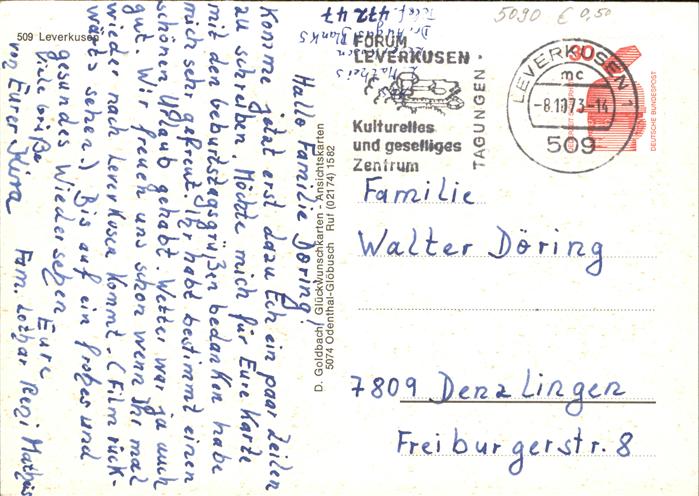 509 Leverkusen
Hallo Familie Döring!
Komme jetzt erst dazu Euch ein paar Zeilen
zu schreiben. Möchte mich für Eure Karte
mit den Geburtstagsgrüßen bedanken habe
mich sehr gefreut. Ihr habt bestimmt einen
schönen Urlaub gehabt. Wetter war ja auch
gut. Wir freuen uns schon wenn Ihr mal
wieder nach Leverkusen kommt. (Film rück-
wärts sehen.) Bis auf ein frohes und
gesundes Wiedersehen Eure
Viele Grüße Fam. Lothar
von Eurer
Telef. 472 47
D. Goldbach, Glückwunschkarten - Ansichtskarten
5074 Odenthal-Glöbusch Ruf (02174) 1582
5090 € 0,50
FORUM
LEVERKUSEN
Kulturelles
und geselliges
Zentrum
TAGUNGEN
LEVERKUSEN 1
mc
-8.10.73-14
509
30
DEUTSCHE BUNDESPOST
Familie
Walter Döring
7809 Denzlingen
Freiburgerstr. 8